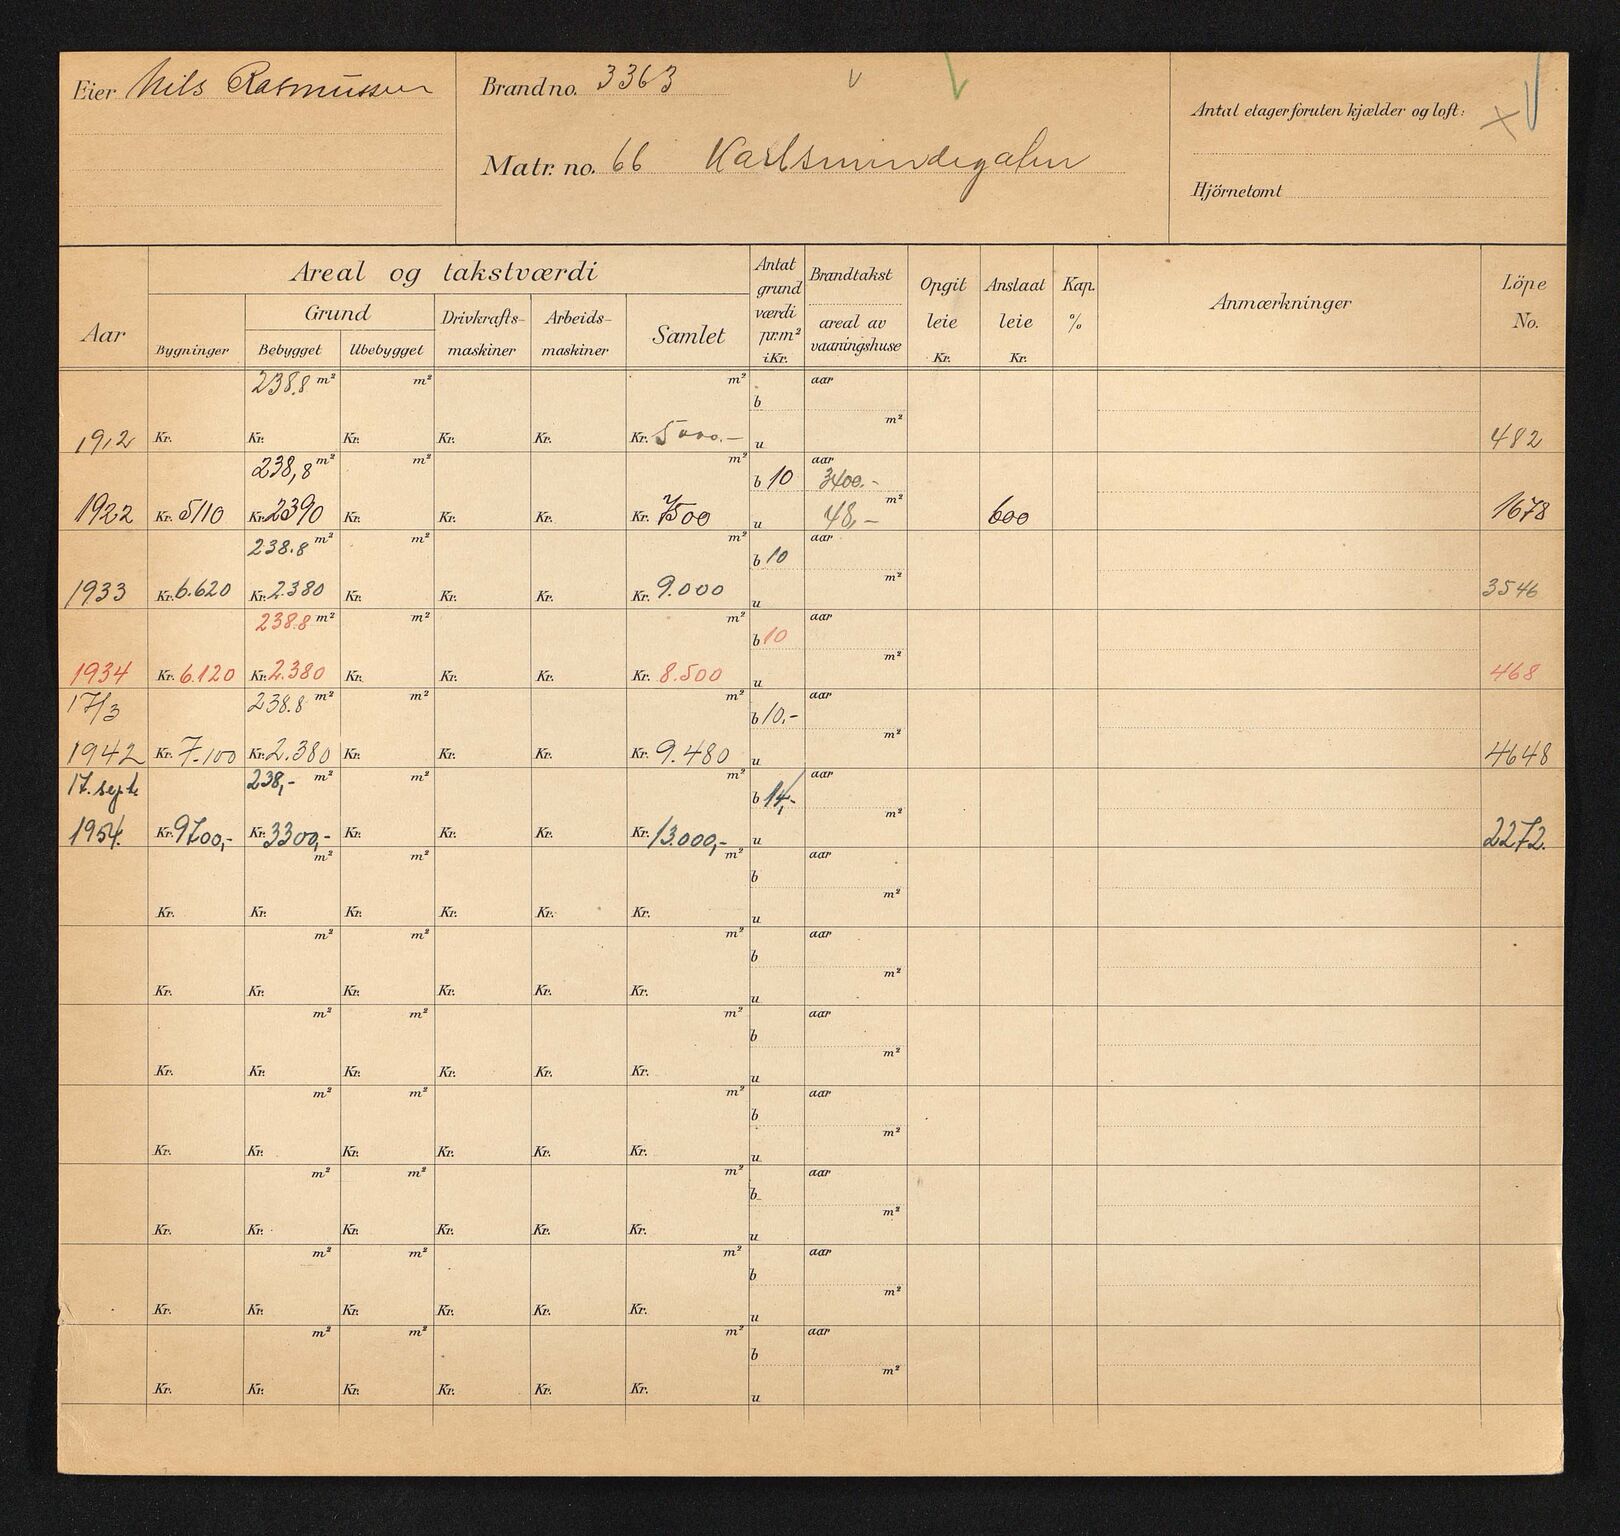 Eier Nils Rasmussen
Brand no. 3363
Matr. no. 66 Karlsmindegaten
Antal etager foruten kjælder og loft: X
Hjörnetomt
Aar
Areal og takstværdi
Bygninger
Grund
Bebygget Ubebygget
Drivkrafts-
maskiner
Arbeids-
maskiner
Samlet
Antat
grund
værdi
pr.m²
i Kr.
Brandtakst
areal av
vaaningshuse
Opgit
leie
Kr.
Anslaat
leie
Kr.
Kap.
%
Anmærkninger
Löpe
No.
238.8 m² m² m² aar
b
m²
1912 Kr. Kr. Kr. Kr. Kr. Kr. 5000.- u 482
238,8 m² m² m² aar
b 10 3400.-
m²
1922 Kr. 5110 Kr. 2390 Kr. Kr. Kr. Kr. 7500 u 48,- 600 1678
238.8 m² m² m² aar
b 10
m²
1933 Kr. 6.620 Kr. 2.380 Kr. Kr. Kr. Kr. 9.000 u 3546
238.8 m² m² m² aar
b 10
m²
1934 Kr. 6.120 Kr. 2.380 Kr. Kr. Kr. Kr. 8.500 u 468
17/3 238.8 m² m² m² aar
b 10.-
m²
1942 Kr. 7.100 Kr. 2.380 Kr. Kr. Kr. Kr. 9.480 u 4648
17. sept. 238,- m² m² m² aar
b 14,-
m²
1954. Kr. 9700,- Kr. 3300,- Kr. Kr. Kr. Kr. 13.000,- u 2272.
m² m² m² aar
b
m²
Kr. Kr. Kr. Kr. Kr. Kr. u
m² m² m² aar
b
m²
Kr. Kr. Kr. Kr. Kr. Kr. u
m² m² m² aar
b
m²
Kr. Kr. Kr. Kr. Kr. Kr. u
m² m² m² aar
b
m²
Kr. Kr. Kr. Kr. Kr. Kr. u
m² m² m² aar
b
m²
Kr. Kr. Kr. Kr. Kr. Kr. u
m² m² m² aar
b
m²
Kr. Kr. Kr. Kr. Kr. Kr. u
m² m² m² aar
b
m²
Kr. Kr. Kr. Kr. Kr. Kr. u